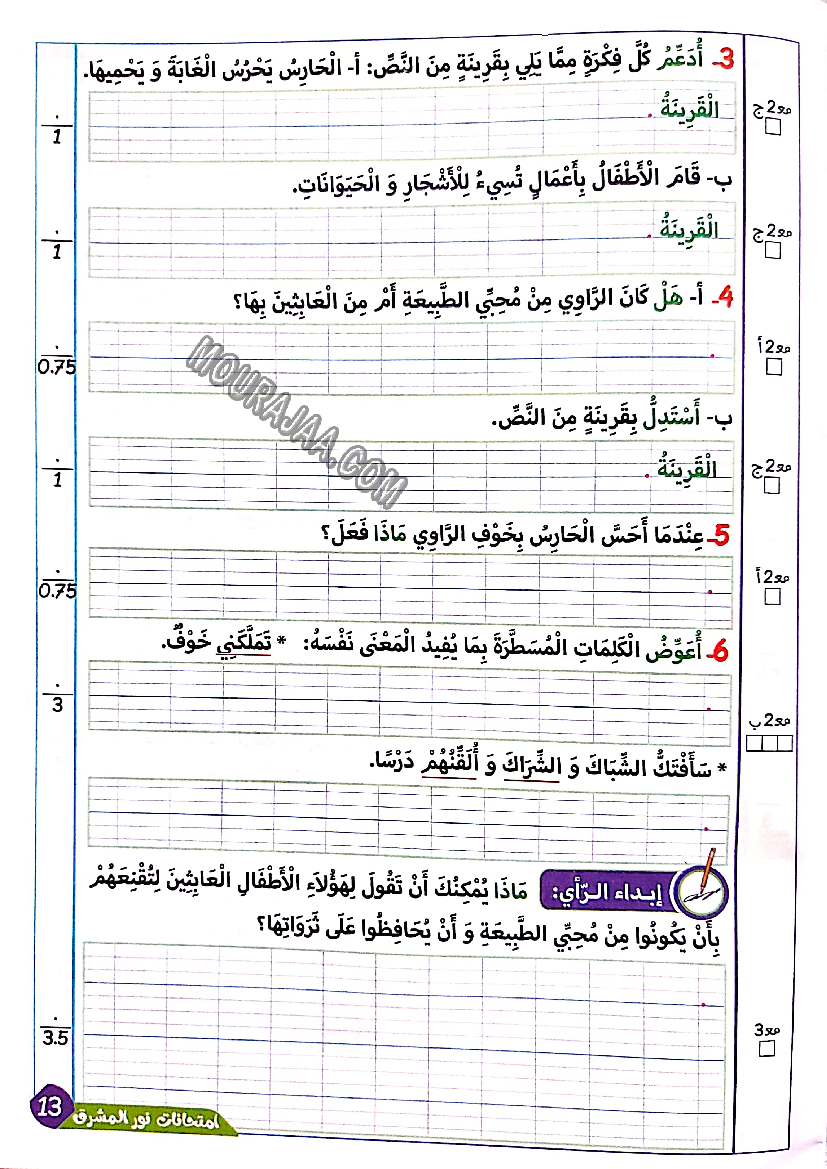 3- أُدَعِّمُ كُلَّ فِكْرَةٍ مِمَّا يَلِي بِقَرِينَةٍ مِنَ النَّصِّ: أ- الْحَارِسُ يَحْرُسُ الْغَابَةَ وَ يَحْمِيهَا.
مع2ج
الْقَرِينَةُ .
1
ب- قَامَ الْأَطْفَالُ بِأَعْمَالٍ تُسِيءُ لِلْأَشْجَارِ وَ الْحَيَوَانَاتِ.
مع2ج
الْقَرِينَةُ .
1
4- أ- هَلْ كَانَ الرَّاوِي مِنْ مُحِبِّي الطَّبِيعَةِ أَمْ مِنَ الْعَابِثِينَ بِهَا؟
مع2أ
0.75
MOURAJAA.COM
ب- أَسْتَدِلُّ بِقَرِينَةٍ مِنَ النَّصِّ.
مع2ج
الْقَرِينَةُ .
1
5- عِنْدَمَا أَحَسَّ الْحَارِسُ بِخَوْفِ الرَّاوِي مَاذَا فَعَلَ؟
مع2أ
0.75
6- أُعَوِّضُ الْكَلِمَاتِ الْمُسَطَّرَةَ بِمَا يُفِيدُ الْمَعْنَى نَفْسَهُ: * تَمَلَّكَنِي خَوْفٌ.
مع2ب
3
* سَأَفْتَكُّ الشِّبَاكَ وَ الشِّرَاكَ وَ أُلَقِّنُهُمْ دَرْسًا.
إبداء الرّأي: مَاذَا يُمْكِنُكَ أَنْ تَقُولَ لِهَؤُلَاءِ الْأَطْفَالِ الْعَابِثِينَ لِتُقْنِعَهُمْ
بِأَنْ يَكُونُوا مِنْ مُحِبِّي الطَّبِيعَةِ وَ أَنْ يُحَافِظُوا عَلَى ثَرَوَاتِهَا؟
مع3
3.5
امتحانات نور المشرق
13